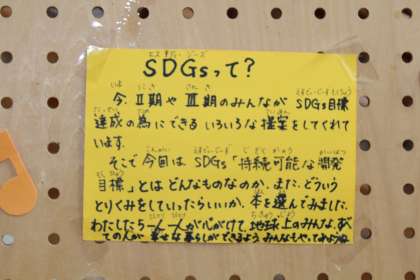 エス ディー ジーズ
SDGsって?
今、Ⅱ期やⅢ期のみんなが SDGs目標
達成の為にできる いろいろな 提案をしてくれて
います。
そこで 今回は、SDGs「持続可能な開発
目標」とは どんなものなのか、また、どういう
とりくみをしていったらいいか、本を選んでみました。
わたしたち一人一人が心がけて、地球上のみんな、すべ
ての人が 幸せな暮らしができるよう みんなもやってみような